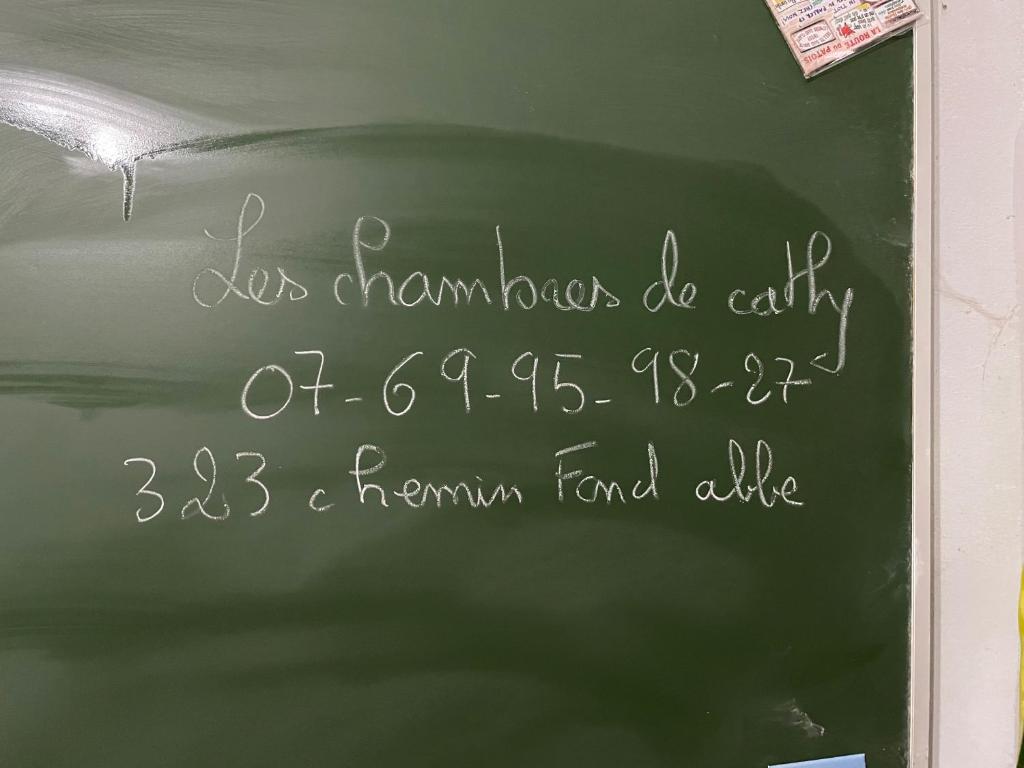 Les chambres de cathy
07-69-95-98-27
323 chemin Fond abbe
LA ROUTE DU PATOIS